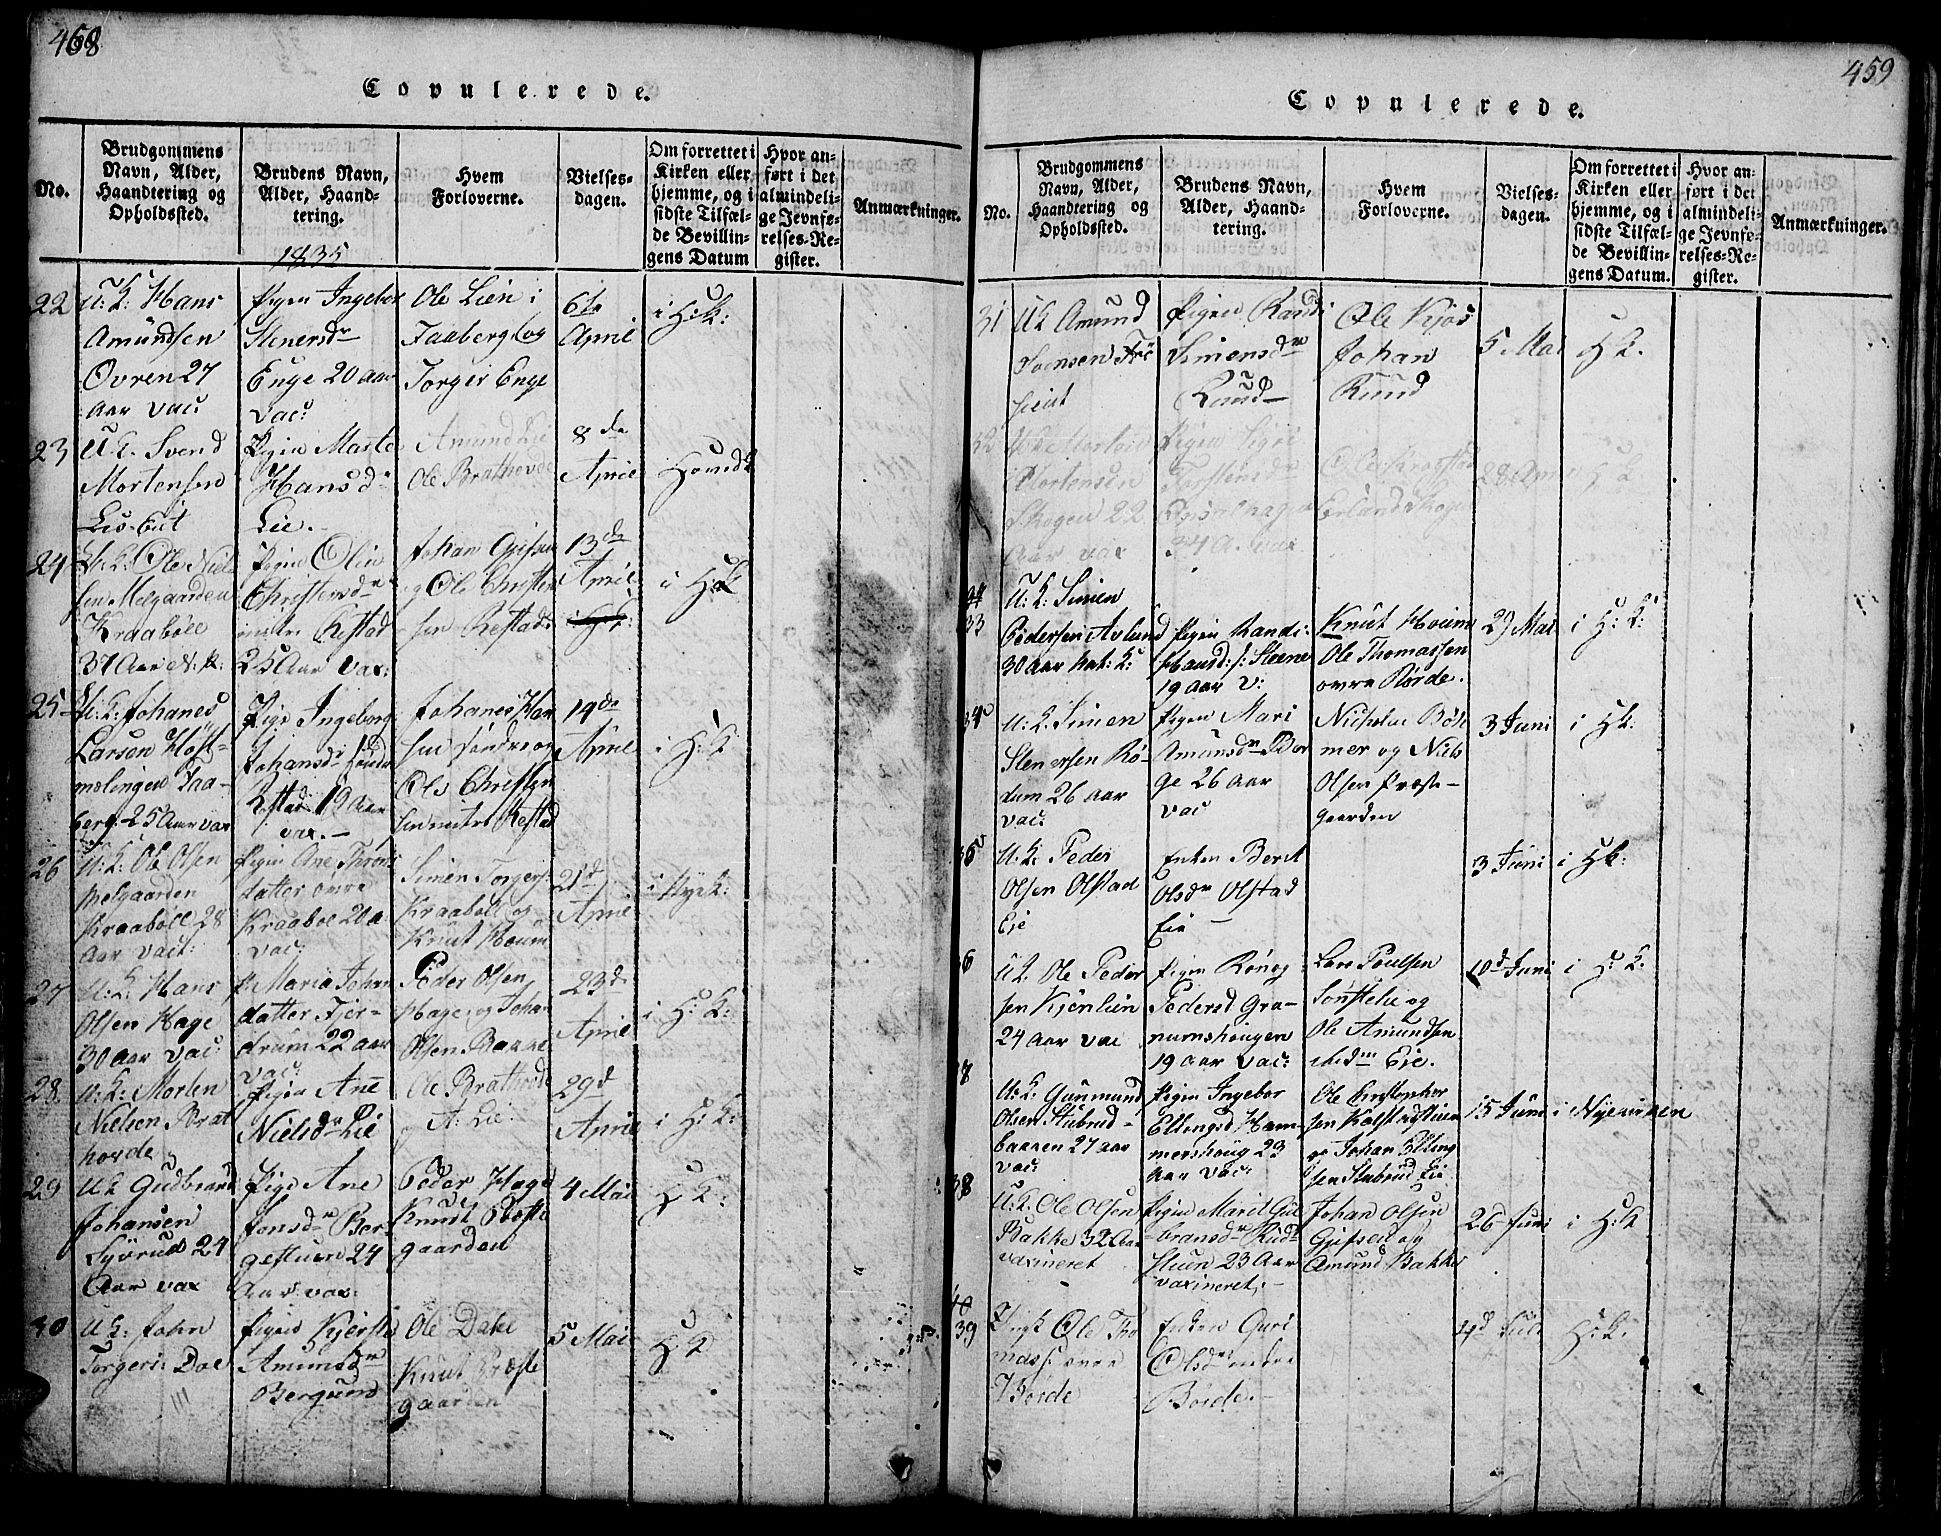 458
Copulerede.
No.
Brudgommens
Navn, Alder,
Haandtering og
Opholdssted.
Brudens Navn,
Alder, Haand-
tering.
Hvem
Forloverne.
Vielses-
dagen.
Om forrettet i
Kirken eller
hjemme, og i
sidste Tilfæl-
de Bevillin-
gens Datum
Hvor an-
ført i det
almindeli-
ge Jevnfø-
relses-Re-
gister.
Anmærkninger.
1835
22
U: K: Hans
Amundsen
Ovren 27
Aar vac:
Pigen Ingebor
Stenersdr
Enge 20 aar
vac:
Ole Lien i
Faaberg og
Torger Enge
6te
April
i H: K:
23
U: K. Svend
Mortensen
Pigen Marte
Hansdr
Lie.
Amund Lie
Ole Brathorde
8de
April
i Hovedk
24
U: K: Ole Niel
sen Melgaarden
Kraaböll
37 Aar N. k:
Pigen Olin
Christensdr
mitre Restad
25 Aar vax:
Johan
og Ole Christen
sen Restad:
13de
April
i H: K
25
U: K: Johanes
Larsen
Faa-
berg 25 Aar vax
Pige Ingeborg
Johansdr Söndre
Restad 19 aar
vax. -
Johanes Han
sen Söndre og
Ole Christen
sen mitre Restad
14de
April
i H: K
26
U: K: Ole Olsen
Melgaarden
Kraaböll 28
Aar vact:
Pigen Ane Thron
datter övre
Kraaböl 20 a
vac:
Simen Torgers:
Kraaböll og
Knut Houm
21d
April
i Nyek:
27
U: K: Hans
Olsen Hage
30 aar vac:
P. Maria Johan
datter Fjer-
drum 22 aar
vac.
Peder Olsen
Hage og Johan
Olsen Bakke
23d
April
i H: K:
28
U: K: Morten
Nielsen Brat
horde
Pigen Ane
Nielsdr Lie
Ole Brathorde
og A: Lie
29d
April
i H: K:
29
U K Gudbrand
Johansen
24
Aar vax
Pige Ane
Jonsdr Ber-
gestuen 24
Aar vax.
Peder Hage
Knudt Præste
gaarden
4 Mai
H K:
30
U K: John
Torgers: Dæ
Pigen Kjersti
Amunsdr
Berglund
Ole Dahl
Knut Præste
gaarden
5 Mai
H: K
459
Copulerede.
No.
Brudgommens
Navn, Alder,
Haandtering og
Opholdssted.
Brudens Navn,
Alder, Haand-
tering.
Hvem
Forloverne.
Vielses-
dagen.
Om forrettet i
Kirken eller
hjemme, og i
sidste Tilfæl-
de Bevillin-
gens Datum.
Hvor an-
ført i det
almindeli-
ge Jevnfø-
relses-Re-
gister.
Anmærkninger.
31
U K Amund
Svensen
Pigen Randi
Simensdr
Ruud
Ole Kjos
Johan
Ruud
5 Mai
H K.
32
Morten
Mortensen
Skogen 22
Aar vax
Pigen Sigri
Torstensdr
34 A. vax
Erland Skogen
28 Apr
H K.
33
U: K: Simen
Pedersen Avlund
30 aar nat: K:
Pigen Randi
Hansd: s: Steene
19 aar v:
Knut Houm
Ole Thomassen
övre Börde.
29 Mai
i H: K:
34
U: K. Simen
Stenersen Rö-
dum 26 aar
vac:
Pigen Mari
Amunsdr Bor
ge 26 aar
vac
Nicholai Böe
mer og Niels
Olsen Præste-
gaarden
3 Juni
i Hk:
35
U: K: Peder
Olsen Olstad
Eie
Enken Berit
Olsdr Olstad
Eie
3 Juni
i Hk:
36
U K. Ole Peder
sen Kjönlien
24 aar vac
Pigen Rönog
Pedersd Gra-
numshougen
19 aar vac:
Lars Poulsen
Sönstelie og
Ole Amundsen
Eie.
10d Juni
i H: K.
37
U: K: Gunmund
Olsen Stubrud-
bakken 27 aar
vac:
Pigen Ingebor
Ellengsd Ham-
mershoug 23
Aar vac:
Ole Christopher
sen Kalstadstuen
og Johan Elling
sen Stubrud Eie
15 Juni
i Nyekirken
38
U: K. Ole Olsen
Bakke 32 Aar
vaxineret
Pigen Marit Gul
bransdr Rud-
stuen 23 Aar
vaxineret. -
Johan Olsen
Gjefsen og
Amund Bakke
26 Juni
i H: K
39
Ungk Ole Tho
mass: övre
Börde
Enken Guri
Olsdr nedre
Börde. -
H: K.